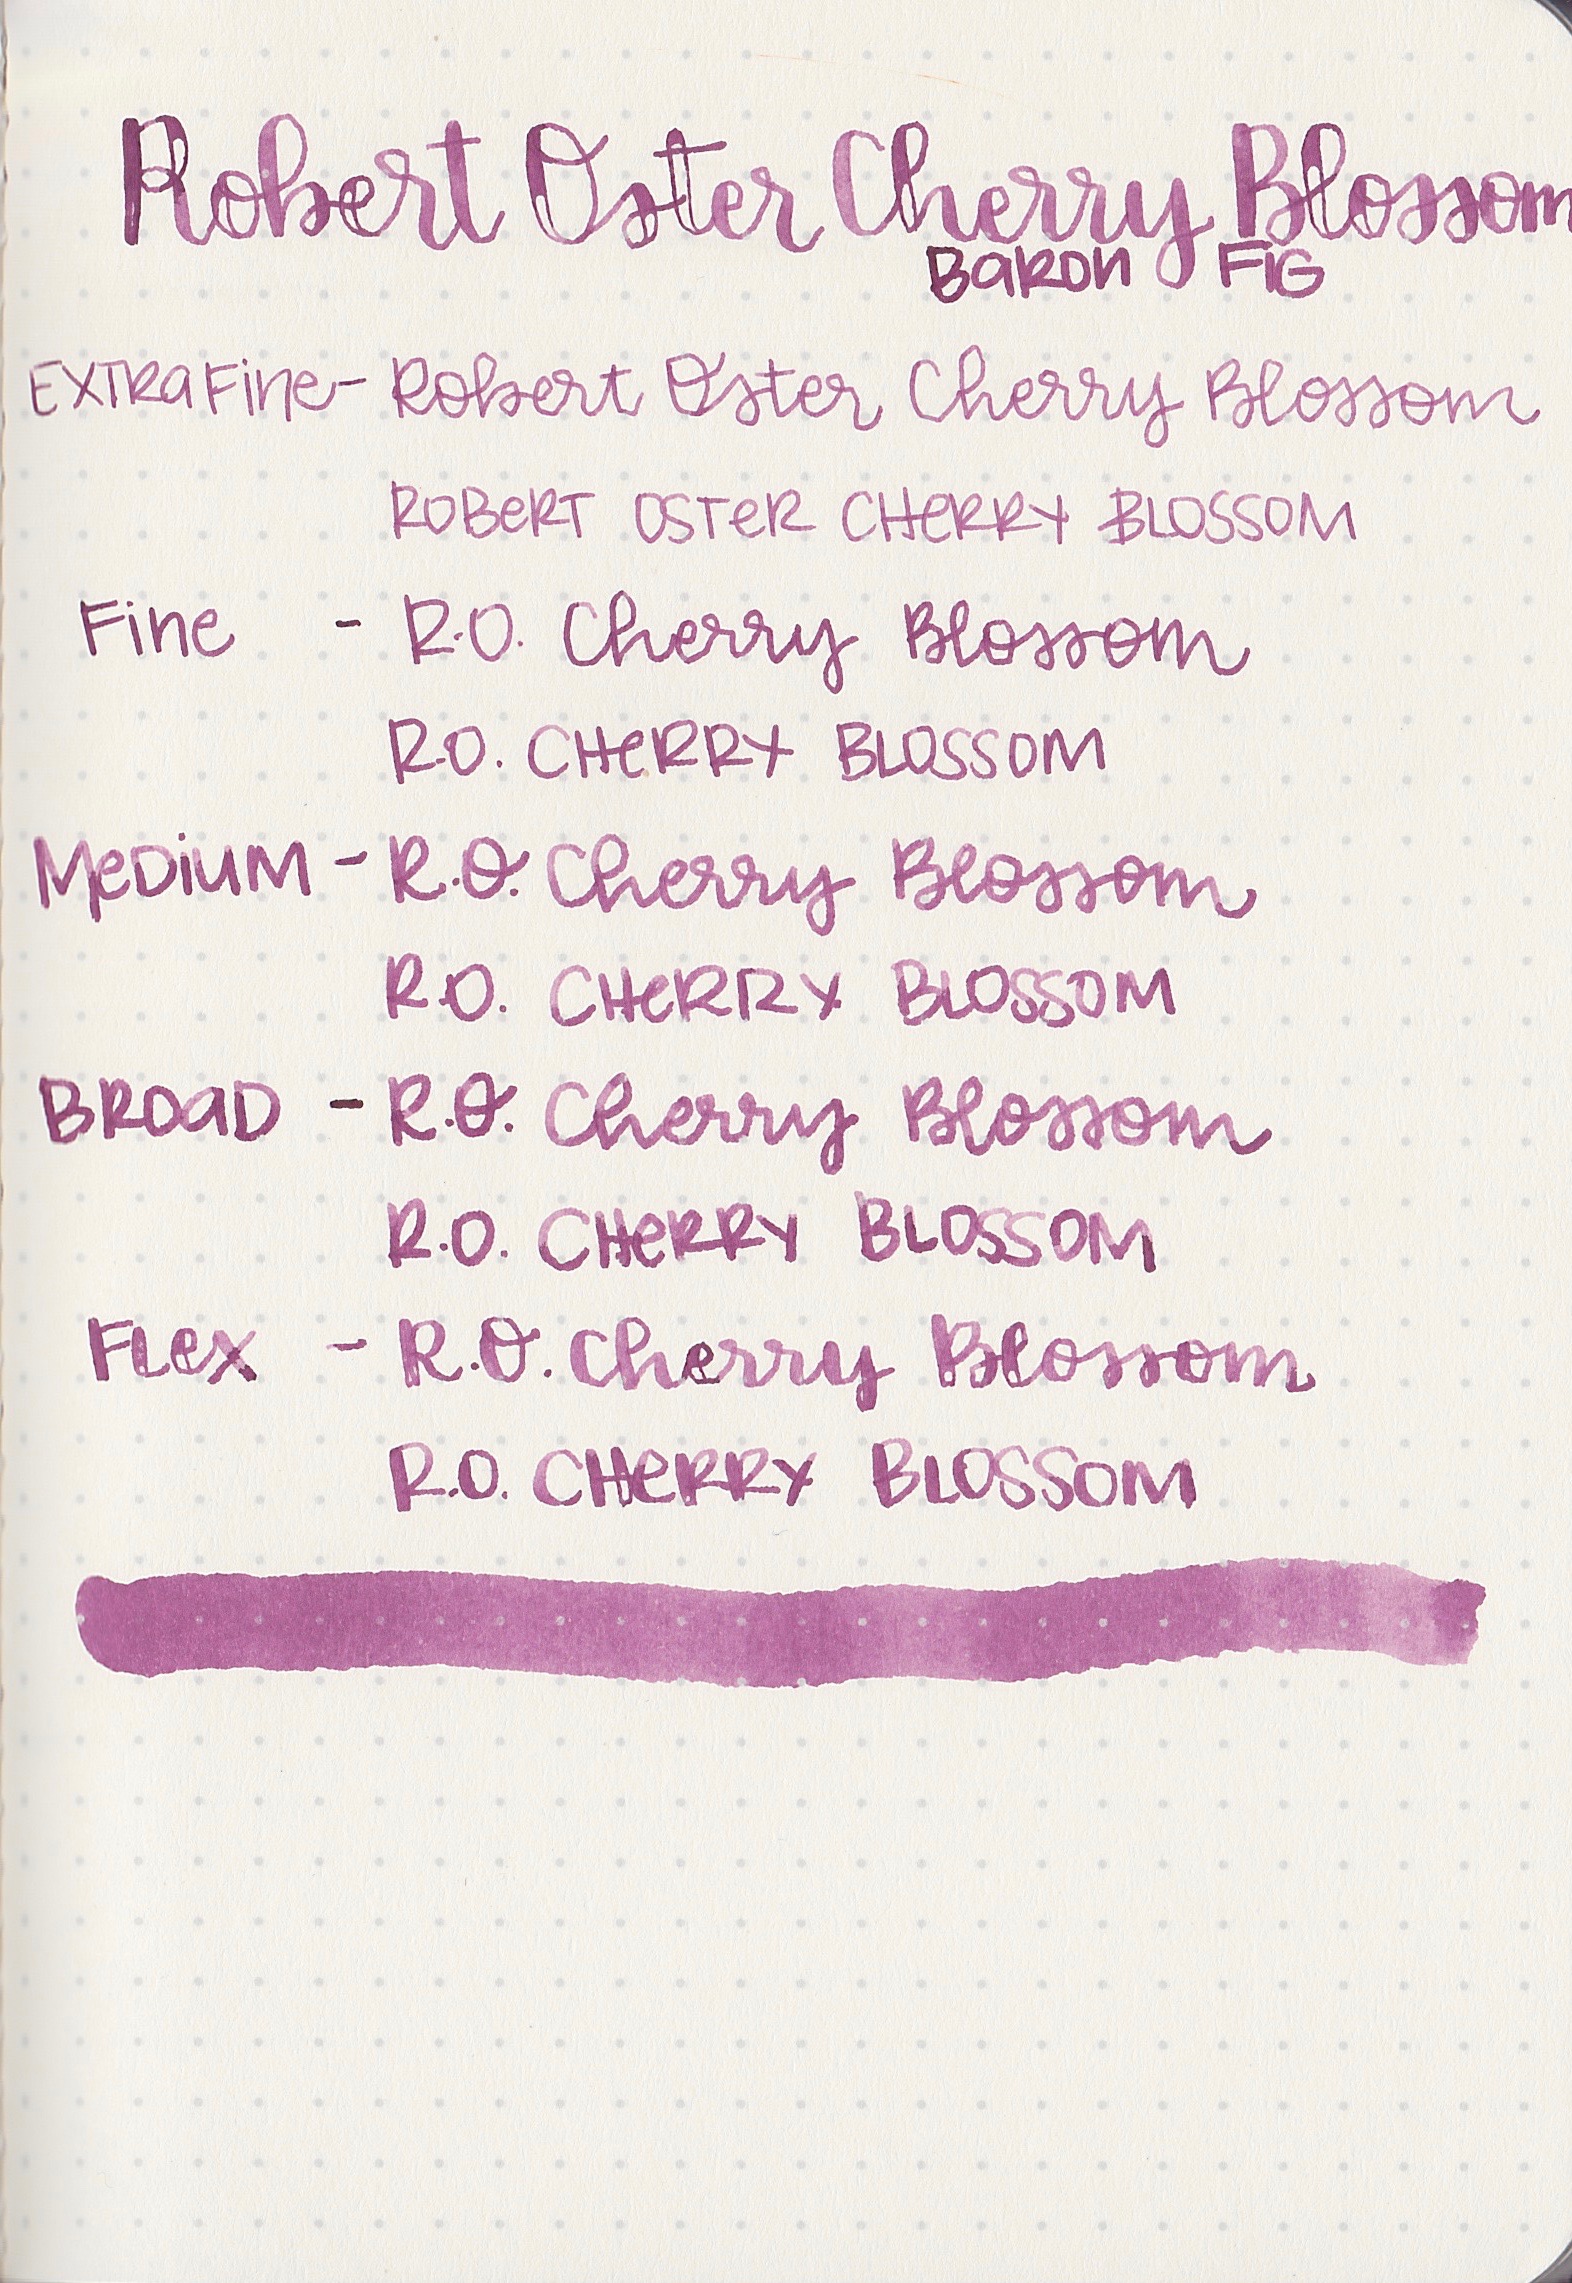 Robert Oster Cherry Blossom
BARON FIG
EXTRA FINE - Robert Oster Cherry Blossom
ROBERT OSTER CHERRY BLOSSOM
Fine - R.O. Cherry Blossom
R.O. CHERRY BLOSSOM
MEDIUM - R.O. Cherry Blossom
R.O. CHERRY BLOSSOM
BROAD - R.O. Cherry Blossom
R.O. CHERRY BLOSSOM
FLEX - R.O. Cherry Blossom
R.O. CHERRY BLOSSOM